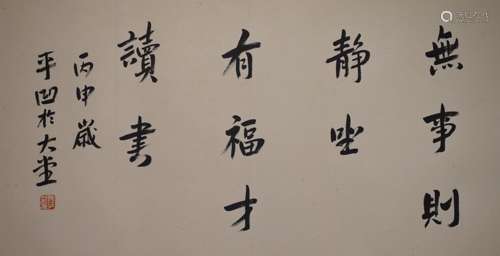 無事則
静坐
有福才
讀書
丙申歲
平凹於大堂